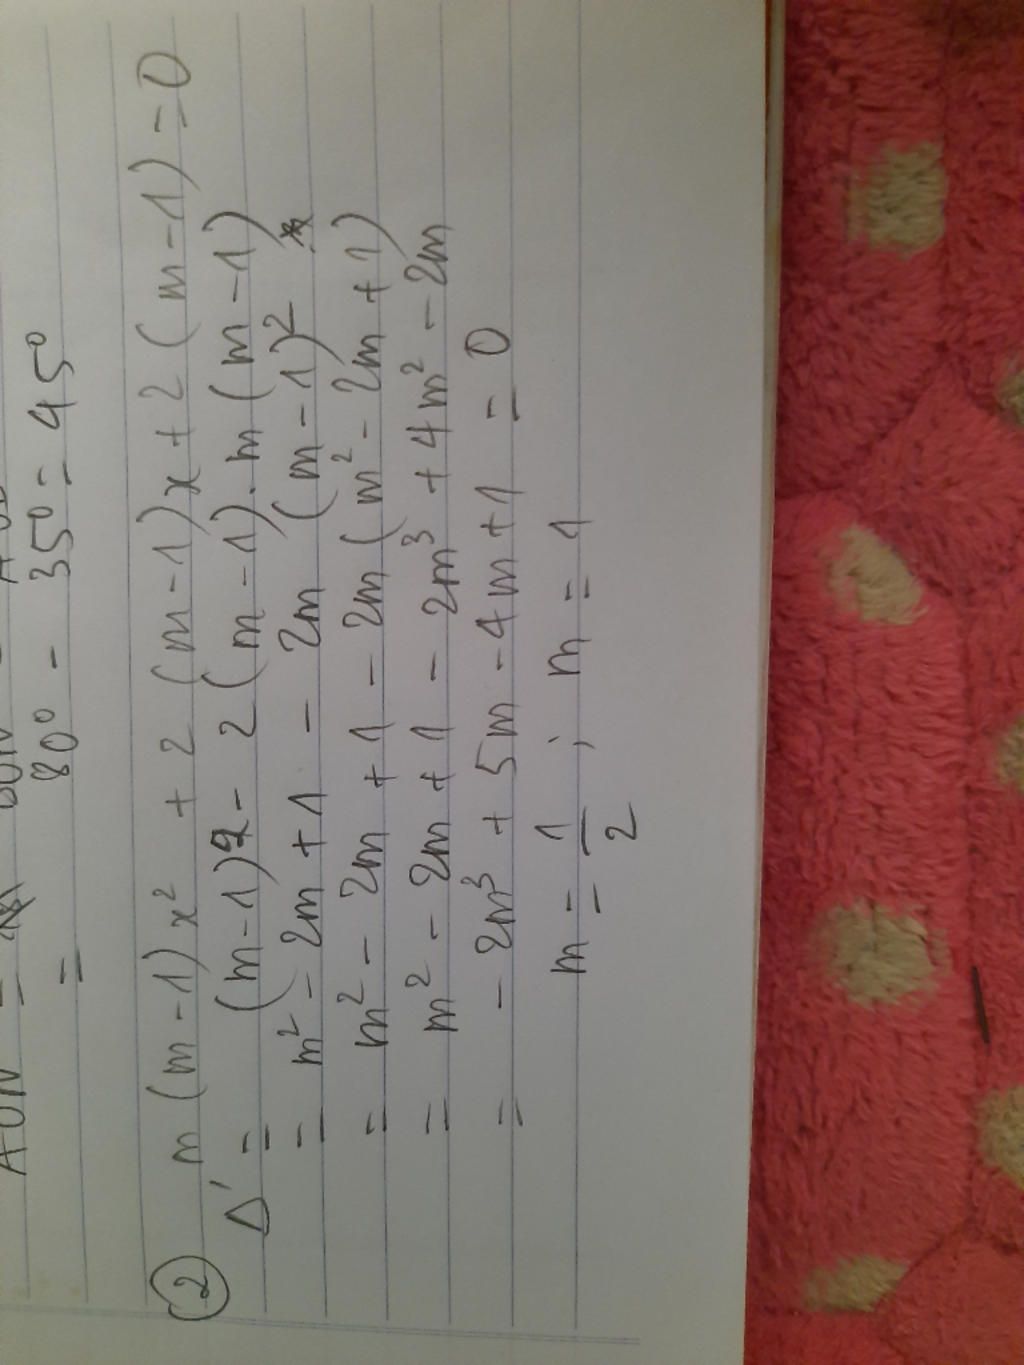 80° - 35° = 45°
=
② m(m-1)x² + 2(m-1)x + 2(m-1) = 0
Δ' = (m-1)² - 2(m-1).m(m-1)
= m² - 2m + 1 - 2m (m-1)²
= m² - 2m + 1 - 2m(m² - 2m + 1)
= m² - 2m + 1 - 2m³ + 4m² - 2m
= - 2m³ + 5m - 4m + 1 = 0
m = 1/2 ; m = 1